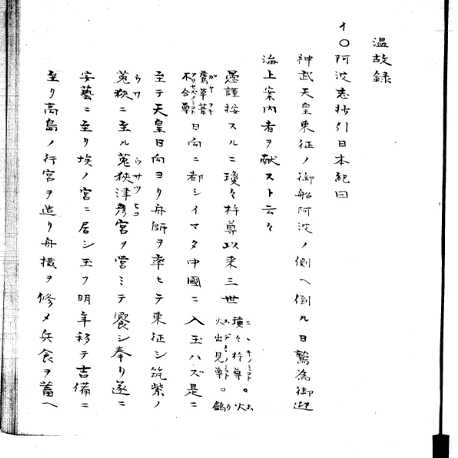 温故録
イ〇阿波志抄引日本紀曰
神武天皇東征ノ御船阿波ノ側ヘ倒ル日鷲為御迎
海上案内者ヲ献スト云々
愚謹按スルニ瓊々杵尊以来三世瓊々杵尊。火火出見尊。鶿
鷀草葺不合尊日向ニ都シイマタ中國ニ入玉ハズ是ニ
至テ天皇日向ヨリ舟師ヲ率ヒテ東征シ筑紫ノ
菟狹ニ至ル菟狹津彦宮ヲ営ミテ饗シ奉リ遂ニ
安藝ニ至リ埃ノ宮ニ居シ玉フ明年移テ吉備ニ
至リ高島ノ行宮ヲ造リ舟檝ヲ修メ兵食ヲ蓄ヘ